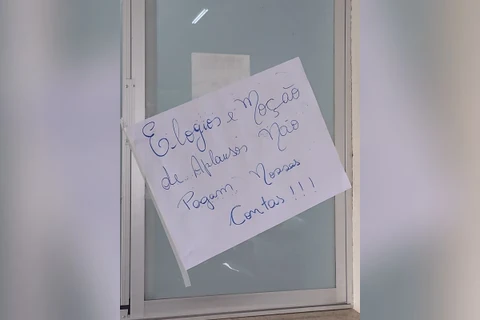 Elogios e Moção
de Aplausos Não
Pagam Nossas
Contas!!!